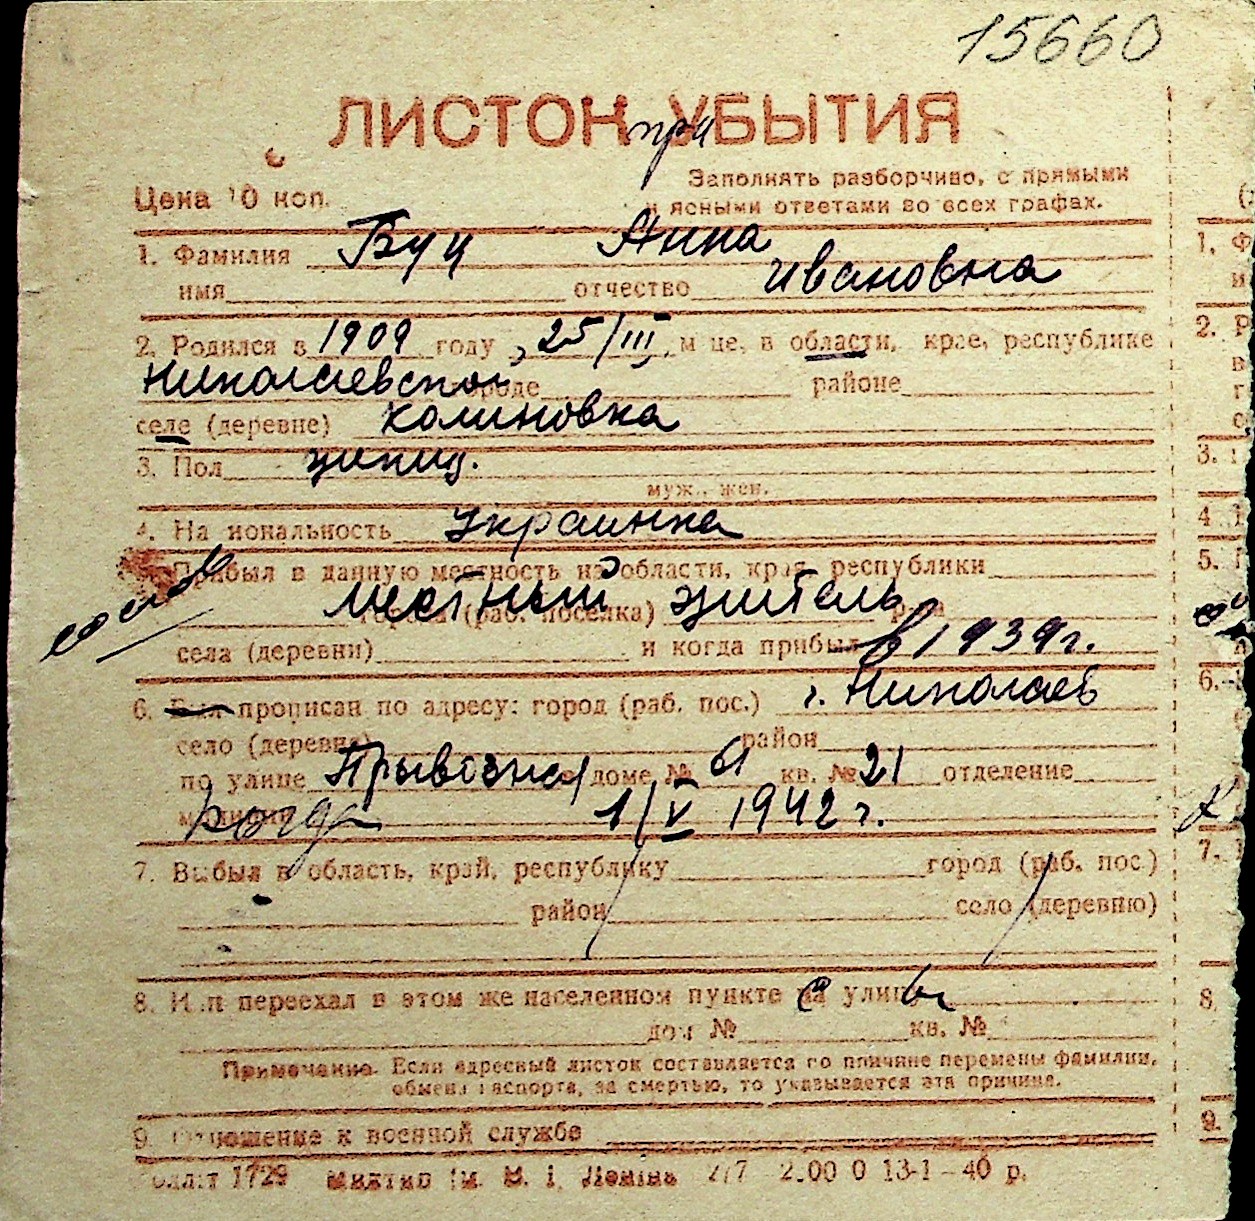 15660
ЛИСТОК УБЫТИЯ
при
Цена 10 коп.
Заполнять разборчиво, с прямыми
и ясными ответами во всех графах.
1. Фамилия Буц Анна
имя отчество Ивановна
2. Родился в 1909 году, 25/III, м це, в области, крае, республике
Николаевской городе районе
селе (деревне) Калиновка
3. Пол
муж., жен.
4. На иональность Украинка
Прибыл в данную местность из области, края, республики
Местный житель
города (раб. поселка)
села (деревни) и когда прибыл в 1939г.
6. Был прописан по адресу: город (раб. пос.) г. Николаев
село (деревня) район
по улице Привозная доме № кв. № 21 отделение
милиции когда 1/V 1942 г.
7. Выбыл в область, край, республику город (раб. пос.)
район село (деревню)
8. Или переехал в этом же населенном пункте на улицу
дом № кв. №
Примечание. Если адресный листок составляется по причине перемены фамилии,
обмена паспорта, за смертью, то указывается эта причина.
9. Отношение к военной службе
1729 В. І. Леніна 2.00 0 13-1-40 р.
1. Ф
2. Р
3.
4.
5. П
6.
7.
8.
9.